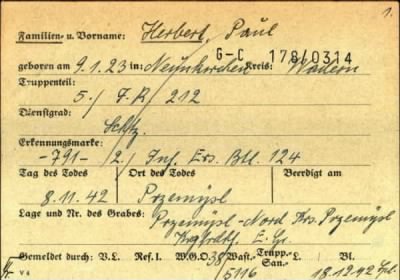 1.
Familien- u. Vorname: Herbert, Paul
G-C 178/0314
geboren am 9.1.23 in Neunkirchen Kreis: Wadern
Truppenteil:
5./ J.R/ 212
Dienstgrad:
Schtz.
Erkennungsmarke:
-791-/2./ Inf. Ers. Btl. 124
Tag des Todes Ort des Todes Beerdigt am
8.11.42 Przemysl
Lage und Nr. des Grabes: Przemysl-Nord Krs. Przemysl
E. Gr.
Gemeldet durch: V.L. Ref. I. W.G.O 38/ Wast- Trupp.- San.- L. Bl.
V4 /5116 18.12.42